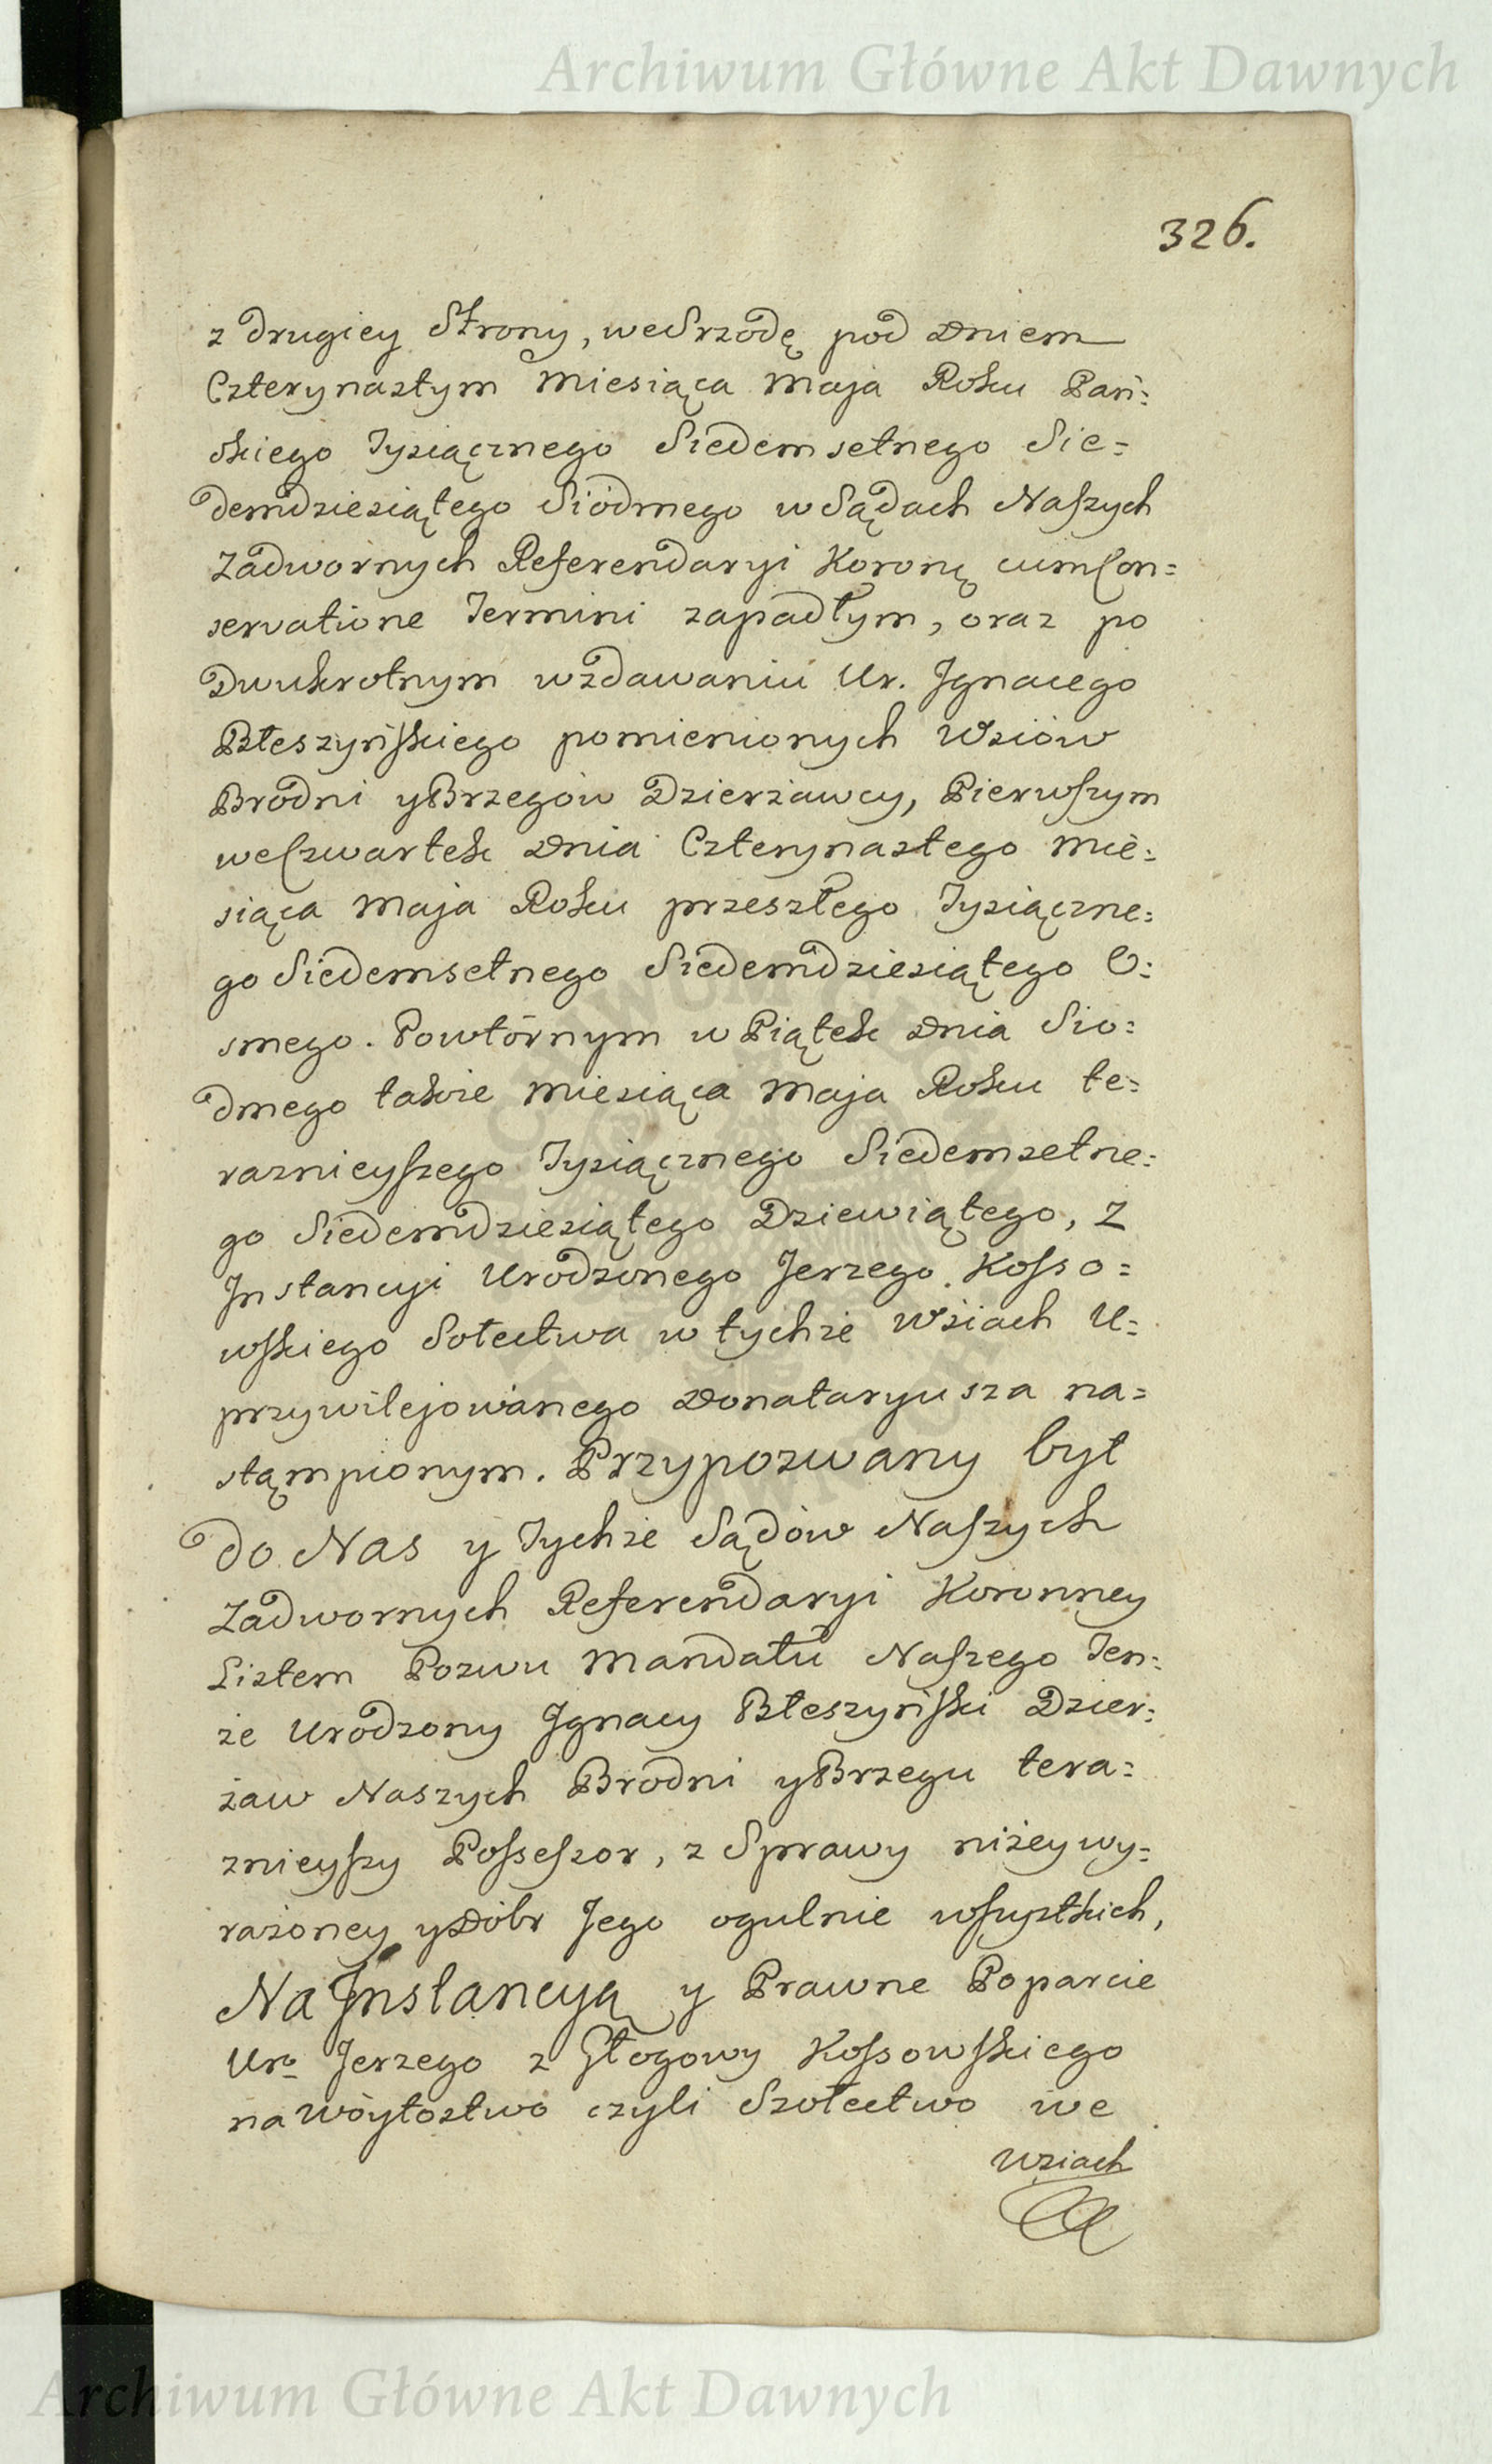 Archiwum Główne Akt Dawnych
326.
z drugiey Strony, we Srzodę pod Dniem
Czterynastym Miesiąca Maja Roku Pań:
skiego Tysiącznego Siedemsetnego Sie=
demdziesiątego Siódmego w Sądach Naszych
Zadwornych Referendaryi Koronę cum Con=
servatione Termini zapadłym, oraz po
Dwukrotnym wzdawaniu Ur. Jgnacego
Błeszyńskiego pomienionych Wsiów
Brodni y Brzegów Dzierżawcy, Pierwszym
we Czwartek Dnia Czterynastego Mie:
siąca Maja Roku przeszłego Tysiączne:
go Siedemsetnego Siedemdziesiątego O:
smego. Powtórnym w Piątek Dnia Sio:
dmego także Miesiąca Maja Roku te:
raznieyszego Tysiącznego Siedemsetne:
go Siedemdziesiątego Dziewiątego, z
Jnstancyi Urodzonego Jerzego Kosso=
wskiego Sołectwa w tychże Wsiach U=
przywilejowanego Donataryusza na=
stąmpionym. Przypozwany był
do Nas y Tychże Sądów Naszych
Zadwornych Referendaryi Koronney
Listem Pozwu Mandatu Naszego Ten:
że Urodzony Jgnacy Błeszyński Dzier:
żaw Naszych Brodni y Brzegu tera=
znieyszy Possessor, z Sprawy niżey wy=
rażoney y Dóbr Jego ogulnie wszystkich,
Na Jnstancyą y Prawne Poparcie
Uro Jerzego z Głogowy Kossowskiego
na Wóytostwo czyli Szołectwo we
Wsiach
Archiwum Główne Akt Dawnych